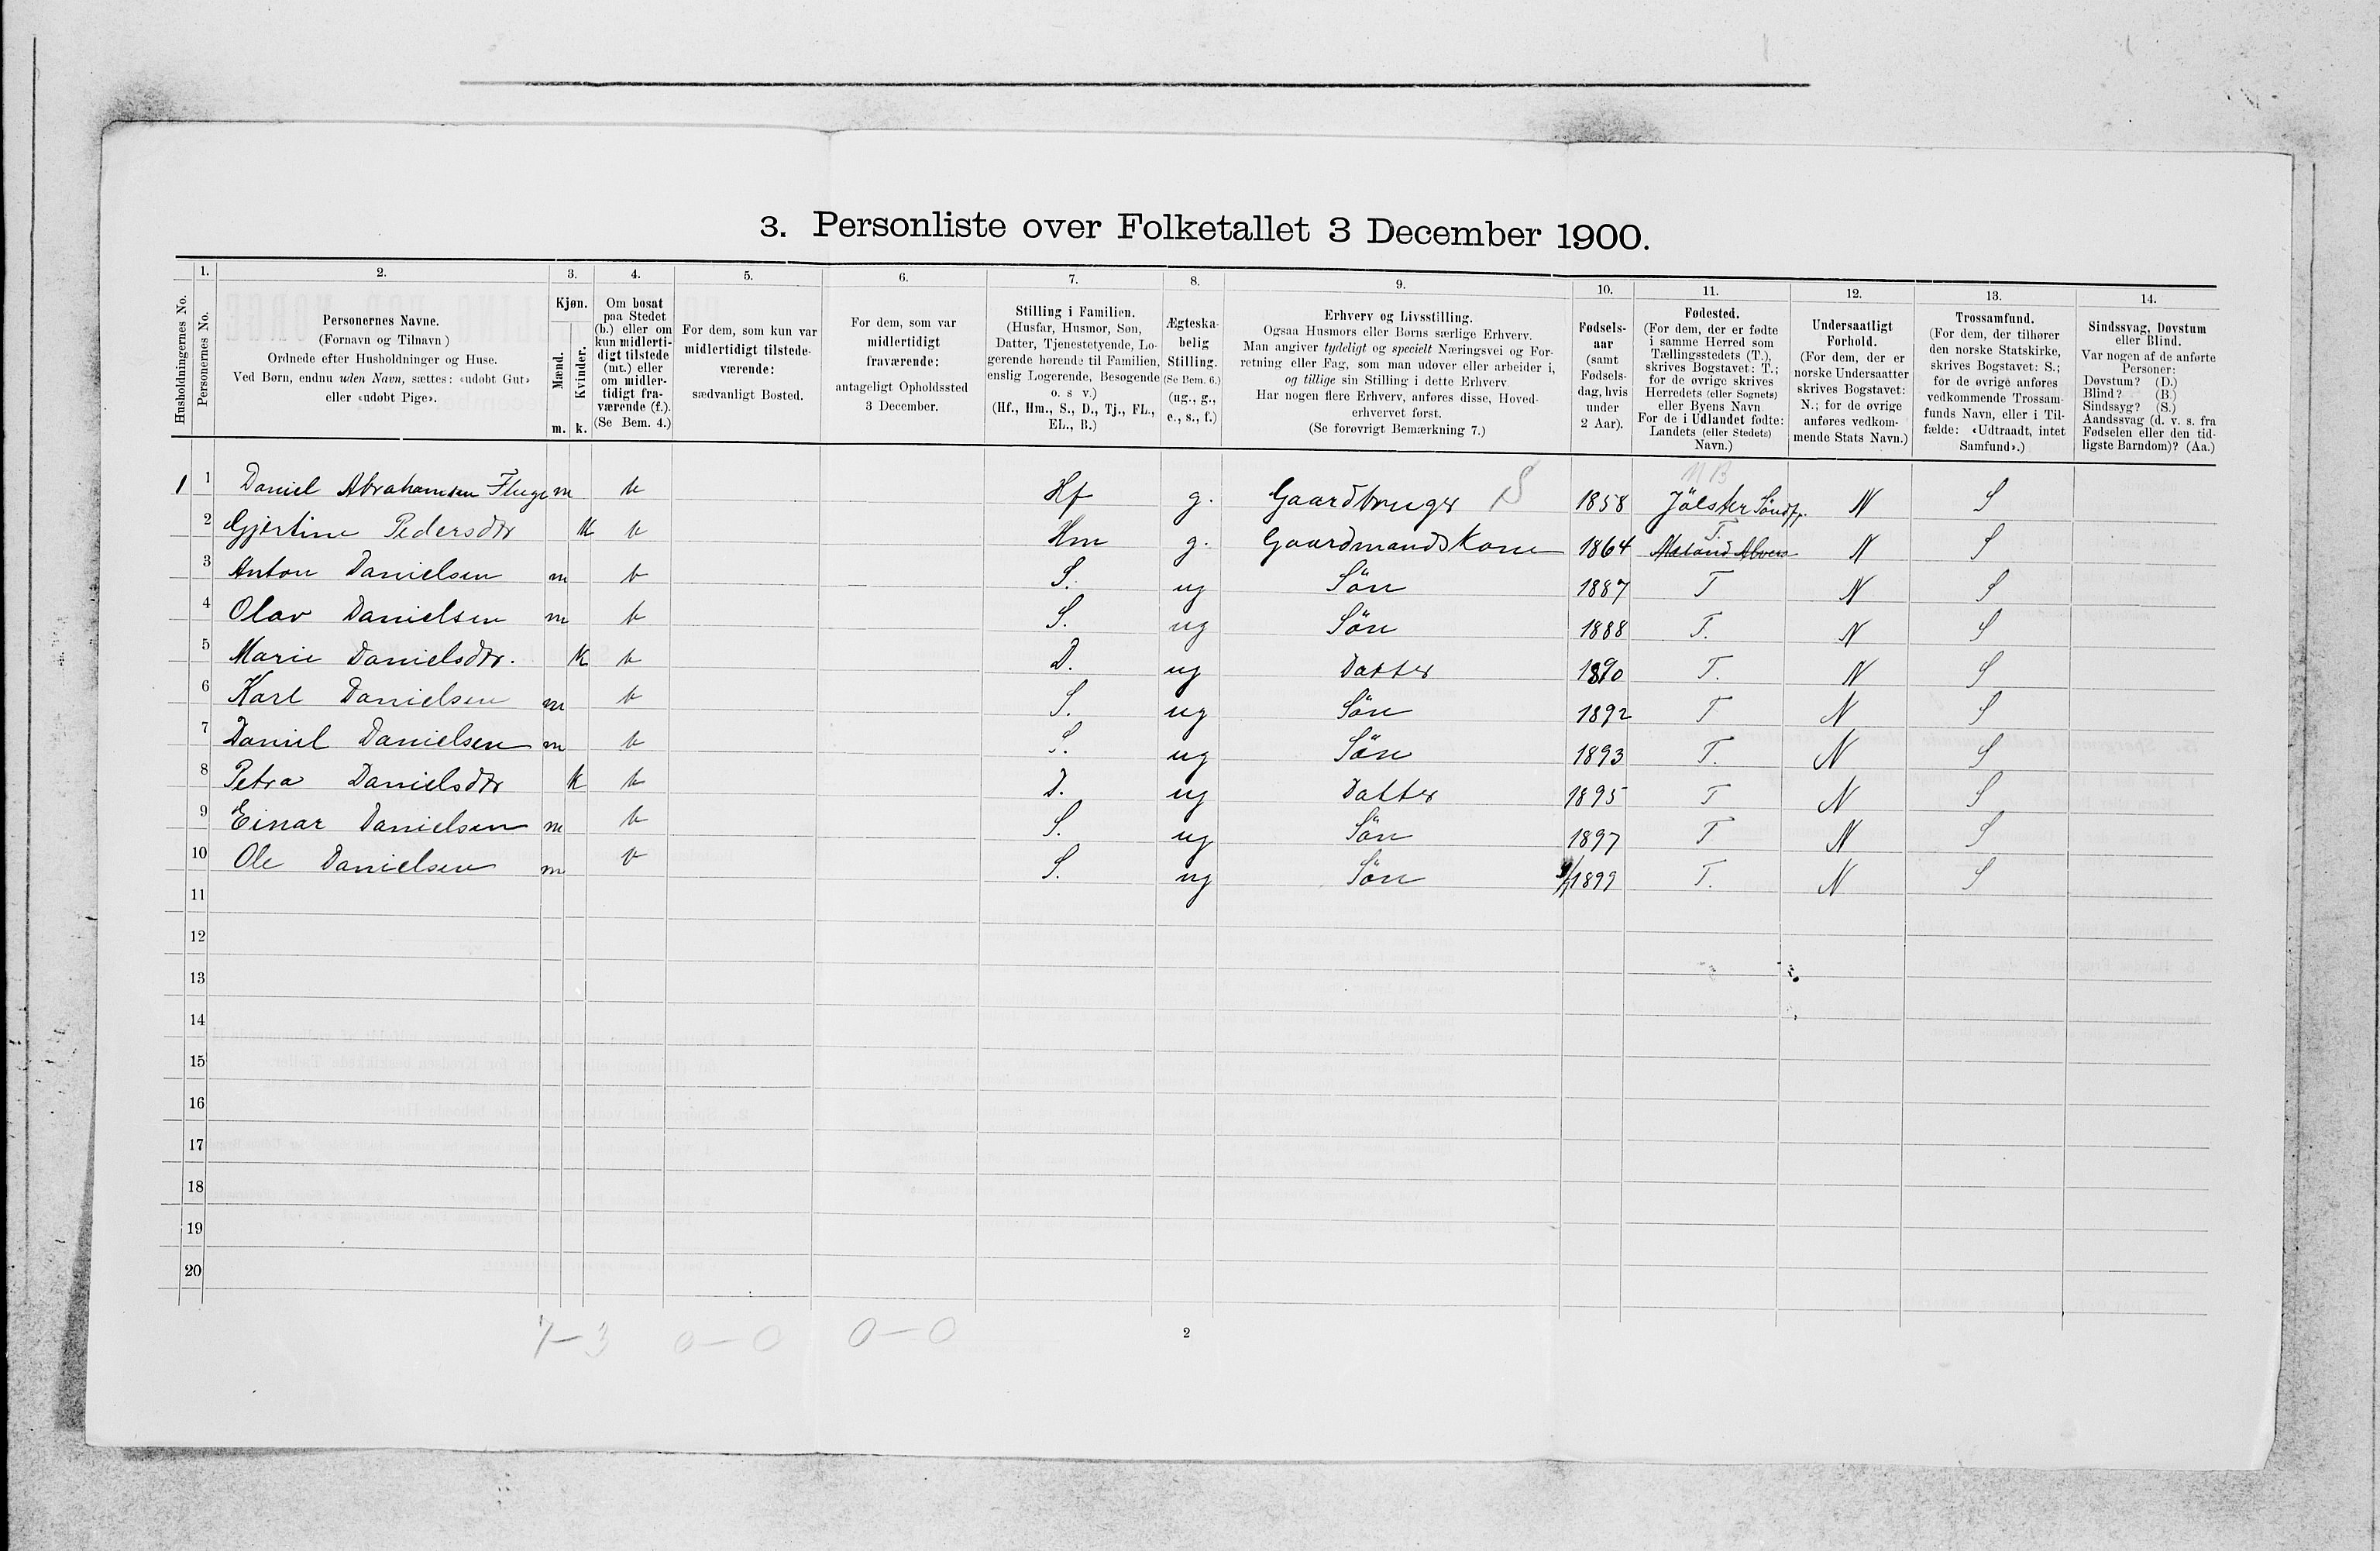 3. Personliste over Folketallet 3 December 1900.
Husholdningernes No.
1.
Personernes No.
2.
Personernes Navne.
(Fornavn og Tilnavn)
Ordnede efter Husholdninger og Huse.
Ved Børn, endnu uden Navn, sættes: «udøbt Gut»
eller «udøbt Pige».
3.
Kjøn.
Mænd.
Kvinder.
m. k.
4.
Om bosat
paa Stedet
(b.) eller om
kun midlerti-
digt tilstede
(mt.) eller
om midler-
tidigt fra-
værende (f.).
(Se Bem. 4.)
5.
For dem, som kun var
midlertidigt tilstede-
værende:
sædvanligt Bosted.
6.
For dem, som var
midlertidigt
fraværende:
antageligt Opholdssted
3 December.
7.
Stilling i Familien.
(Husfar, Husmor, Søn,
Datter, Tjenestetyende, Lo-
gerende hørende til Familien,
enslig Logerende, Besøgende
o. s v.)
(Hf., Hm., S., D., Tj., FL.,
EL., B.)
8.
Ægteska-
belig
Stilling.
(Se Bem. 6.)
(ug., g.,
e., s., f.)
9.
Erhverv og Livsstilling.
Ogsaa Husmors eller Børns særlige Erhverv.
Man angiver tydeligt og specielt Næringsvei og For-
retning eller Fag, som man udøver eller arbeider i,
og tillige sin Stilling i dette Erhverv.
Har nogen flere Erhverv, anføres disse, Hoved-
erhvervet først.
(Se forøvrigt Bemærkning 7.)
10.
Fødsels-
aar
(samt
Fødsels-
dag, hvis
under
2 Aar).
11.
Fødested.
(For dem, der er fødte
i samme Herred som
Tællingsstedets (T.),
skrives Bogstavet: T.;
for de øvrige skrives
Herredets (eller Sognets)
eller Byens Navn
For de i Udlandet fødte:
Landets (eller Stedets)
Navn.)
12.
Undersaatligt
Forhold.
(For dem, der er
norske Undersaatter
skrives Bogstavet:
N.; for de øvrige
anføres vedkom-
mende Stats Navn.)
13.
Trossamfund.
(For dem, der tilhører
den norske Statskirke,
skrives Bogstavet: S.;
for de øvrige anføres
vedkommende Trossam-
funds Navn, eller i Til-
fælde: «Udtraadt, intet
Samfund».)
14.
Sindssvag, Døvstum
eller Blind.
Var nogen af de anførte
Personer:
Døvstum? (D.)
Blind? (B.)
Sindssyg? (S.)
Aandssvag (d. v. s. fra
Fødselen eller den tid-
ligste Barndom)? (Aa.)
NB
1 1 Daniel Abrahamsen Fluge m b Hf g. Gaardbruger S 1858 Jölster Söndfj. N S
T.
2 Gjertine Pedersdtr k b Hm g. Gaardmandskone 1864 N S
3 Anton Danielsen m b S. ug Sön 1887 T N S
4 Olav Danielsen m b S. ug Sön 1888 T. N S
5 Marie Danielsdtr. k b D. ug Datter 1890 T. N S
6 Karl Danielsen m b S. ug Sön 1892 T N S
7 Daniel Danielsen m b S. ug Sön 1893 T. N S
8 Petra Danielsdtr k b D. ug Datter 1895 T N S
9 Einar Danielsen m b S. ug Sön 1897 T N S
10 Ole Danielsen m b S. ug Sön 1899 T. N S
11
12
13
14
15
16
17
18
19
20
7-3 0-0 0-0
2